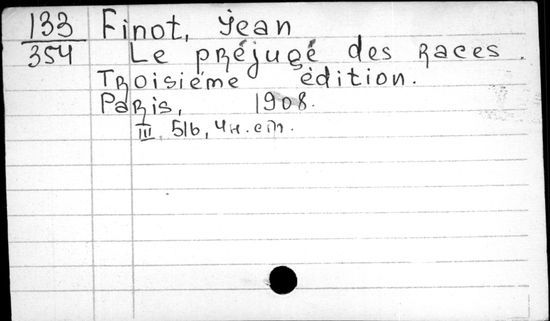 133 Finot, Jean
354 Le préjugé des Races.
Troisième édition.
Paris, 1908.
III, 516, 4н. ст.